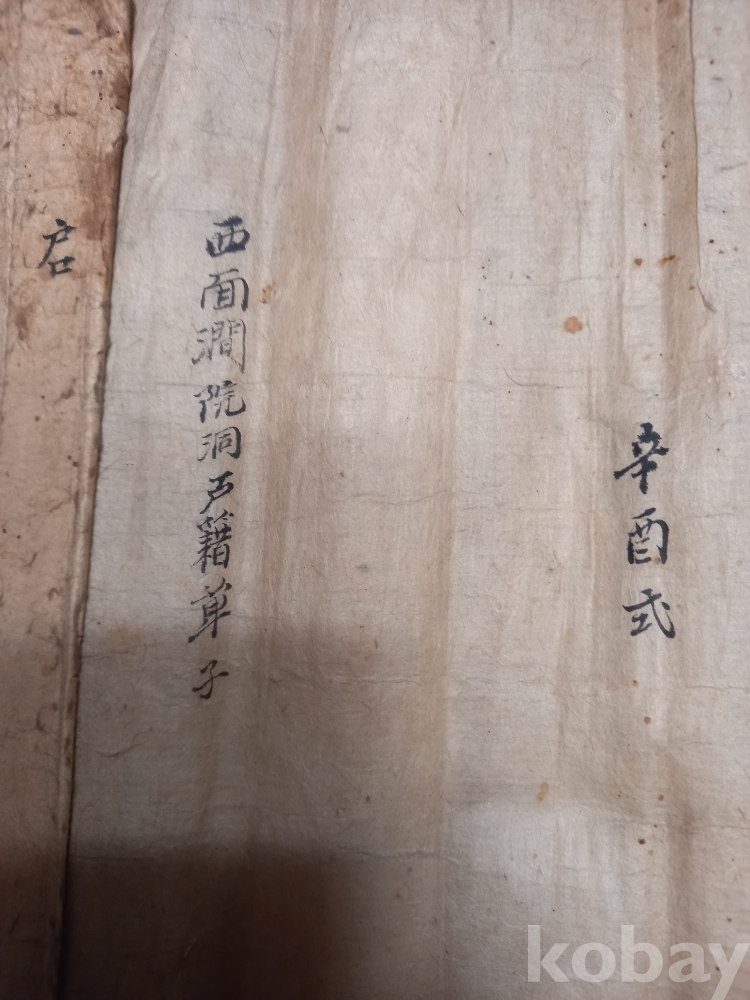 辛酉式
西面澗院洞戶籍單子
戶口
kobay